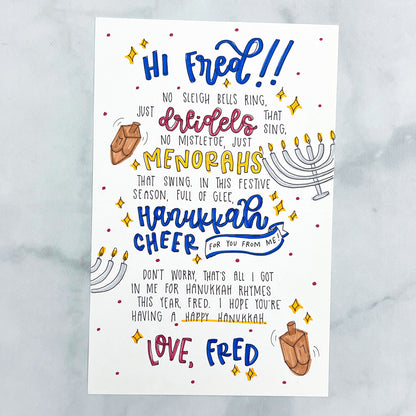 Hi Fred!!
NO SLEIGH BELLS RING,
JUST dreidels THAT SING,
NO MISTLETOE, JUST
MENORAHS
THAT SWING. IN THIS FESTIVE
SEASON, FULL OF GLEE,
HANUKKAH
CHEER FOR YOU FROM ME!
DON'T WORRY, THAT'S ALL I GOT
IN ME FOR HANUKKAH RHYMES
THIS YEAR, FRED. I HOPE YOU'RE
HAVING A HAPPY HANUKKAH.
LOVE, FRED